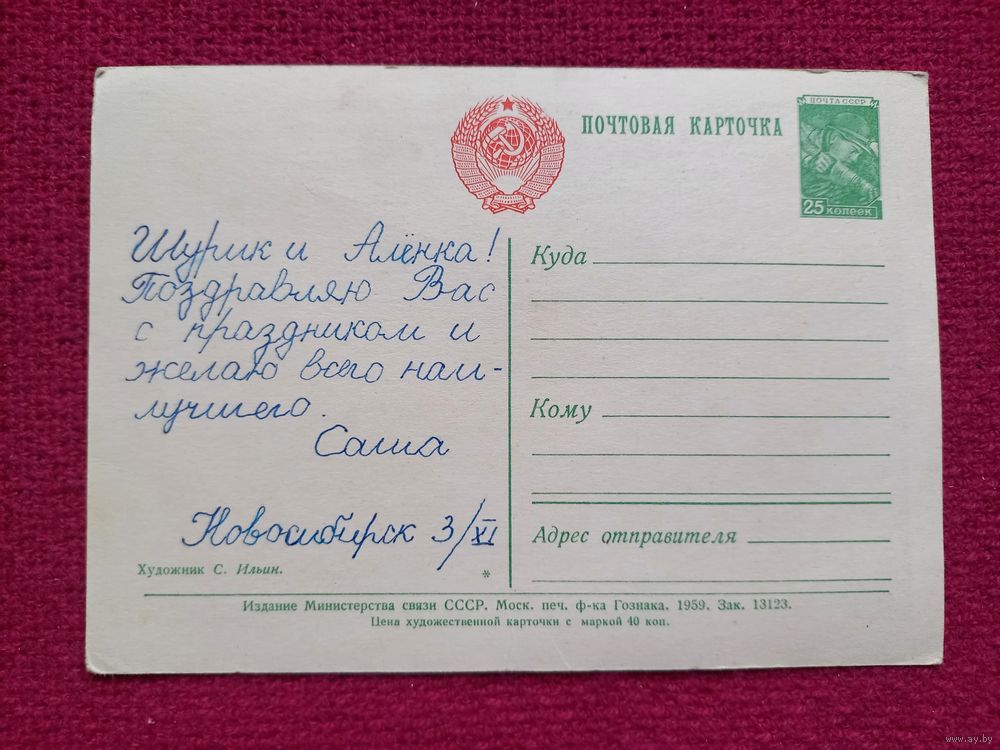 ПОЧТОВАЯ КАРТОЧКА
ПОЧТА СССР
25 копеек
Шурик и Алёнка!
Поздравляю Вас
с праздником и
желаю всего наи-
лучшего.
Саша
Новосибирск 3/XI
Художник С. Ильин.
*
Куда
Кому
Адрес отправителя
Издание Министерства связи СССР. Моск. печ. ф-ка Гознака. 1959. Зак. 13123.
Цена художественной карточки с маркой 40 коп.
www.ay.by